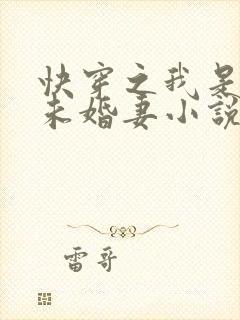 快穿之我是
未婚妻小說
雷哥